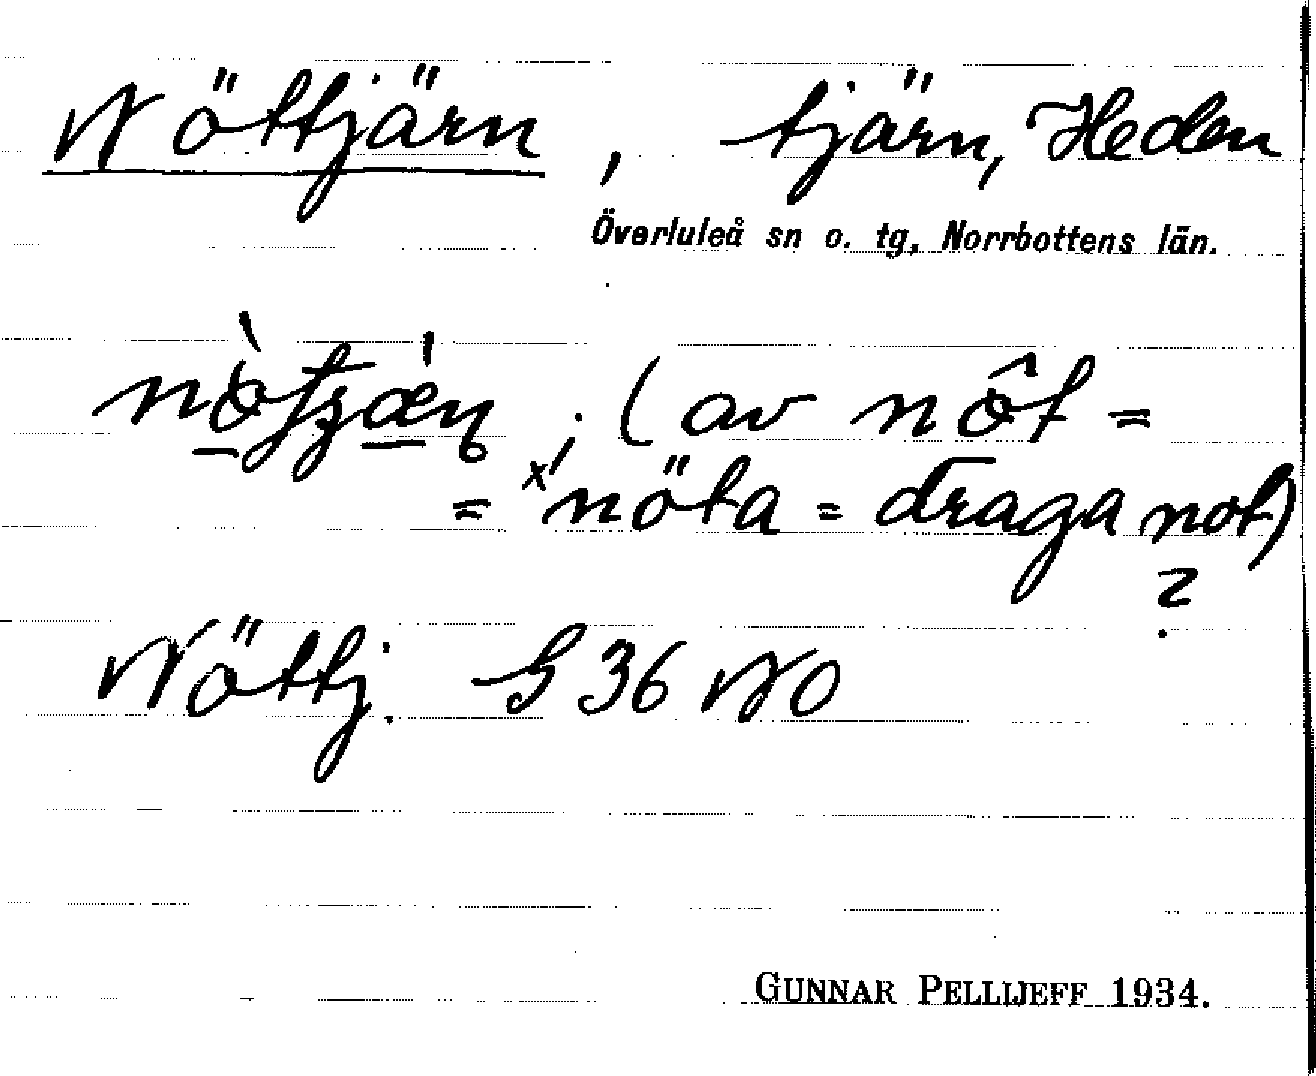 Nöttjärn, tjärn, Heden
Överluleå sn o. tg, Norrbottens län.
; (av nôt =
= ˣnöta = draga not)
?
Nöttj. G 36 NO
GUNNAR PELLIJEFF 1934.